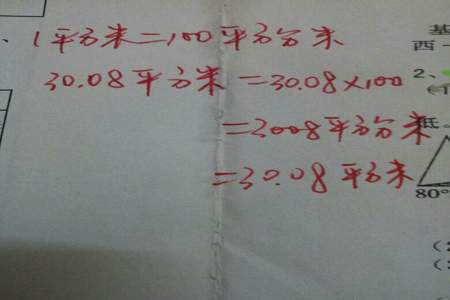 、1平方米=100平方分米
30.08平方米=30.08×100
=3008平方分米
=30.08平方米
基
西一
2、
低
80°